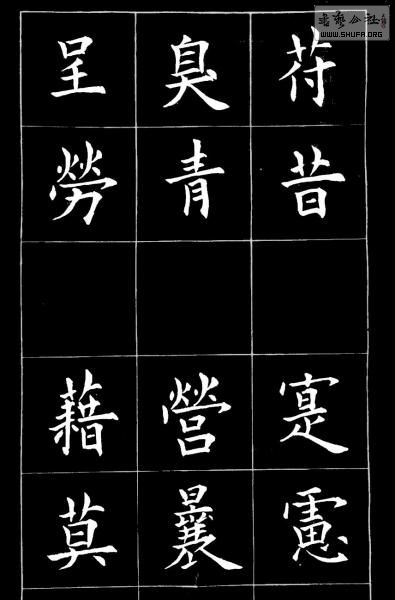 苻昔寔
臭青營曩
呈勞藉莫
書藝公社
WWW.SHUFA.ORG